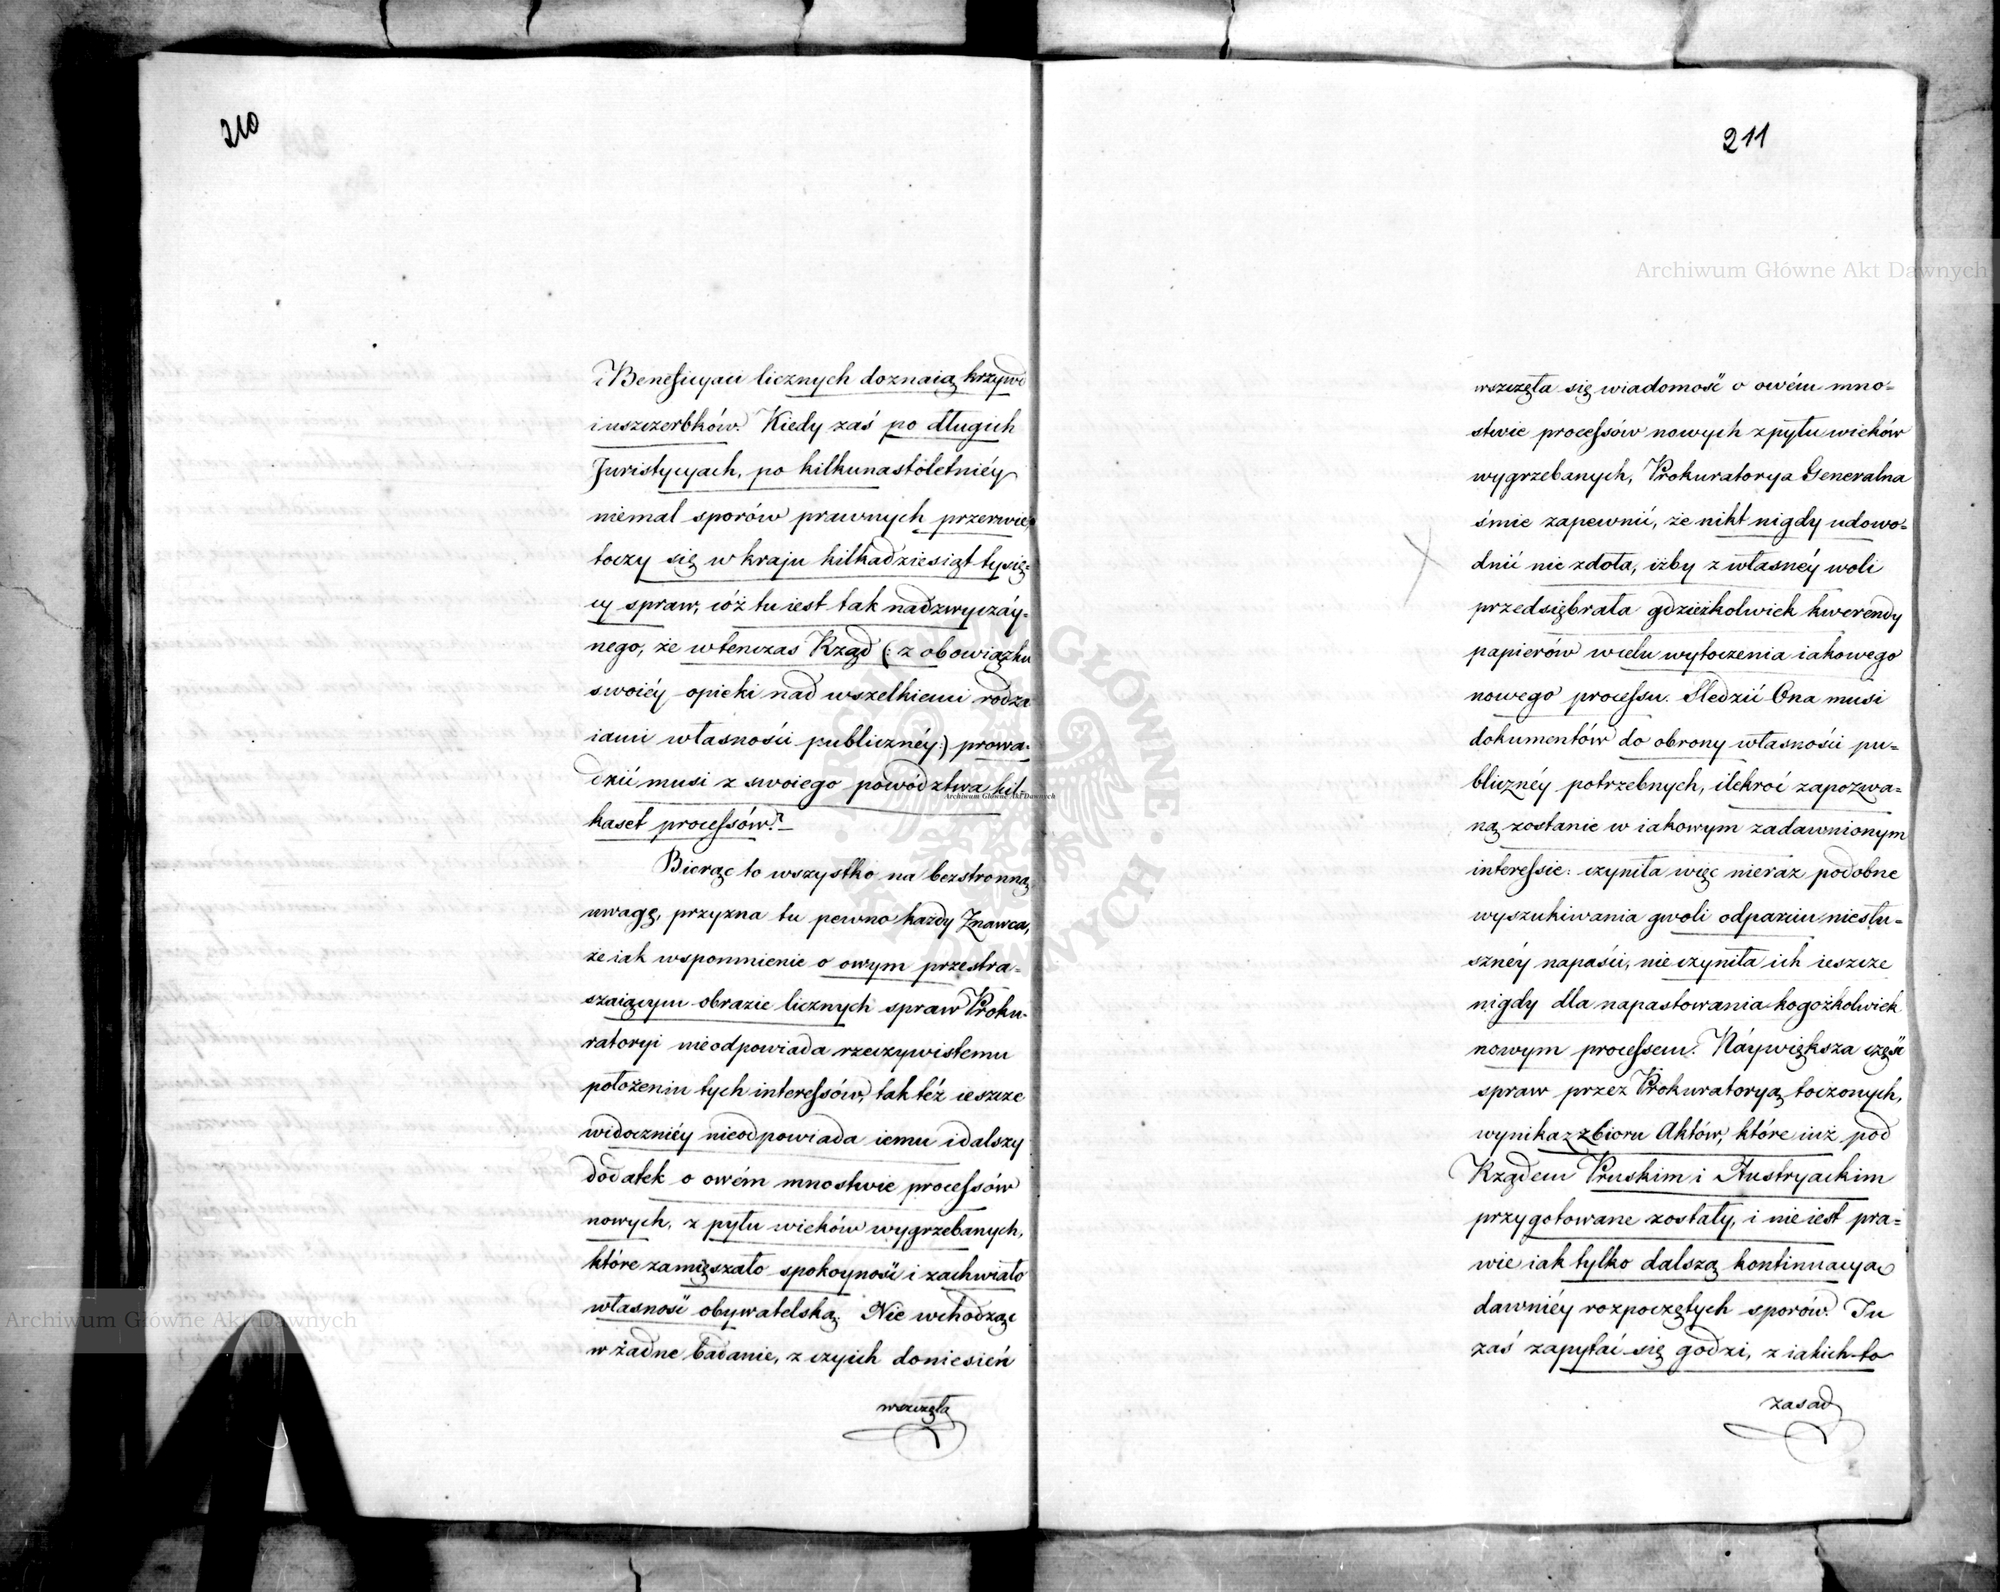 210
i Beneficyaci licznych doznaią krzywd
i uszczerbków. Kiedy zaś po długich
Juristycyach, po kilkunastoletniéy
niemal sporów prawnych przerwie,
toczy się w kraju kilkadziesiąt tysię=
cy spraw, cóż tu iest tak nadzwyczáy=
nego, że wtenczas Rząd (: z obowiązku
swoiéy opieki nad wszelkiemi rodza
iami własności publicznéy:) prowa=
dzić musi z swoiego powództwa kil=
kaset processów?_
Biorąc to wszystko na bezstronną
uwagę, przyzna tu pewno każdy Znawca,
że iak wspomnienie o owym przestra=
szaiącym obrazie licznych spraw Proku=
ratoryi nieodpowiada rzeczywistemu
położeniu tych interessów, tak téż ieszcze
widoczniéy nieodpowiada iemu i dalszy
dodatek o owém mnostwie processów
nowych, z pyłu wieków wygrzebanych,
które zamięszało spokoyność i zachwiało
własność obywatelską. Nie wchodząc
w żadne badanie, z czyich doniesień
wszczęła
211
wszczęła się wiadomość o owém mno=
stwie processów nowych z pyłu wieków
wygrzebanych, Prokuratorya Generalna
śmie zapewnić, że nikt nigdy udowo=
dnić nie zdoła, iżby z własnéy woli
przedsiębrała gdzieżkolwiek kwerendy
papierów w celu wytoczenia iakowego
nowego processu. Sledzić Ona musi
dokumentów do obrony własności pu=
blicznéy potrzebnych, ilekroć zapozwa=
ną zostanie w iakowym zadawnionym
interessie: czyniła więc nieraz podobne
wyszukiwania gwoli odparciu niesłu=
sznéy napaści, nie czyniła ich ieszcze
nigdy dla napastowania kogożkolwiek
nowym processem. Náywiększa część
spraw przez Prokuratoryą toczonych,
wynika z zbioru Aktów, które iuż pod
Rządem Pruskim i Austryackim
przygotowane zostały, i nie iest pra=
wie iak tylko dalszą kontinuacyą
dawniéy rozpoczętych sporów. Tu
zaś zapytać się godzi, z iakich to
zasad
Archiwum Główne Akt Dawnych
Archiwum Główne Akt Dawnych
Archiwum Główne Akt Dawnych